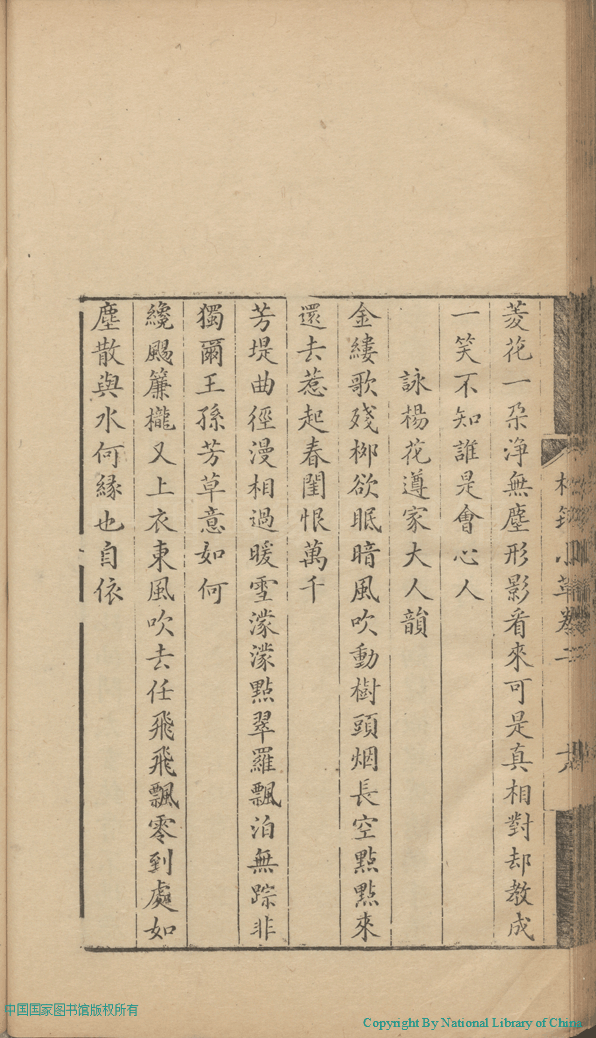 菱花一朵浄無塵形影看來可是真相對却教成
一笑不知誰是會心人
詠楊花遵家大人韻
金縷歌殘栁欲眠暗風吹動樹頭烟長空點點來
還去惹起春閨恨萬千
芳堤曲徑漫相過暖雪濛濛點翠羅飄泊無踪非
獨爾王孫芳草意如何
纔颺簾櫳又上衣東風吹去任飛飛飄零到處如
塵散與水何緣也自依
小草卷二
中国国家图书馆版权所有
Copyright By National Library of China